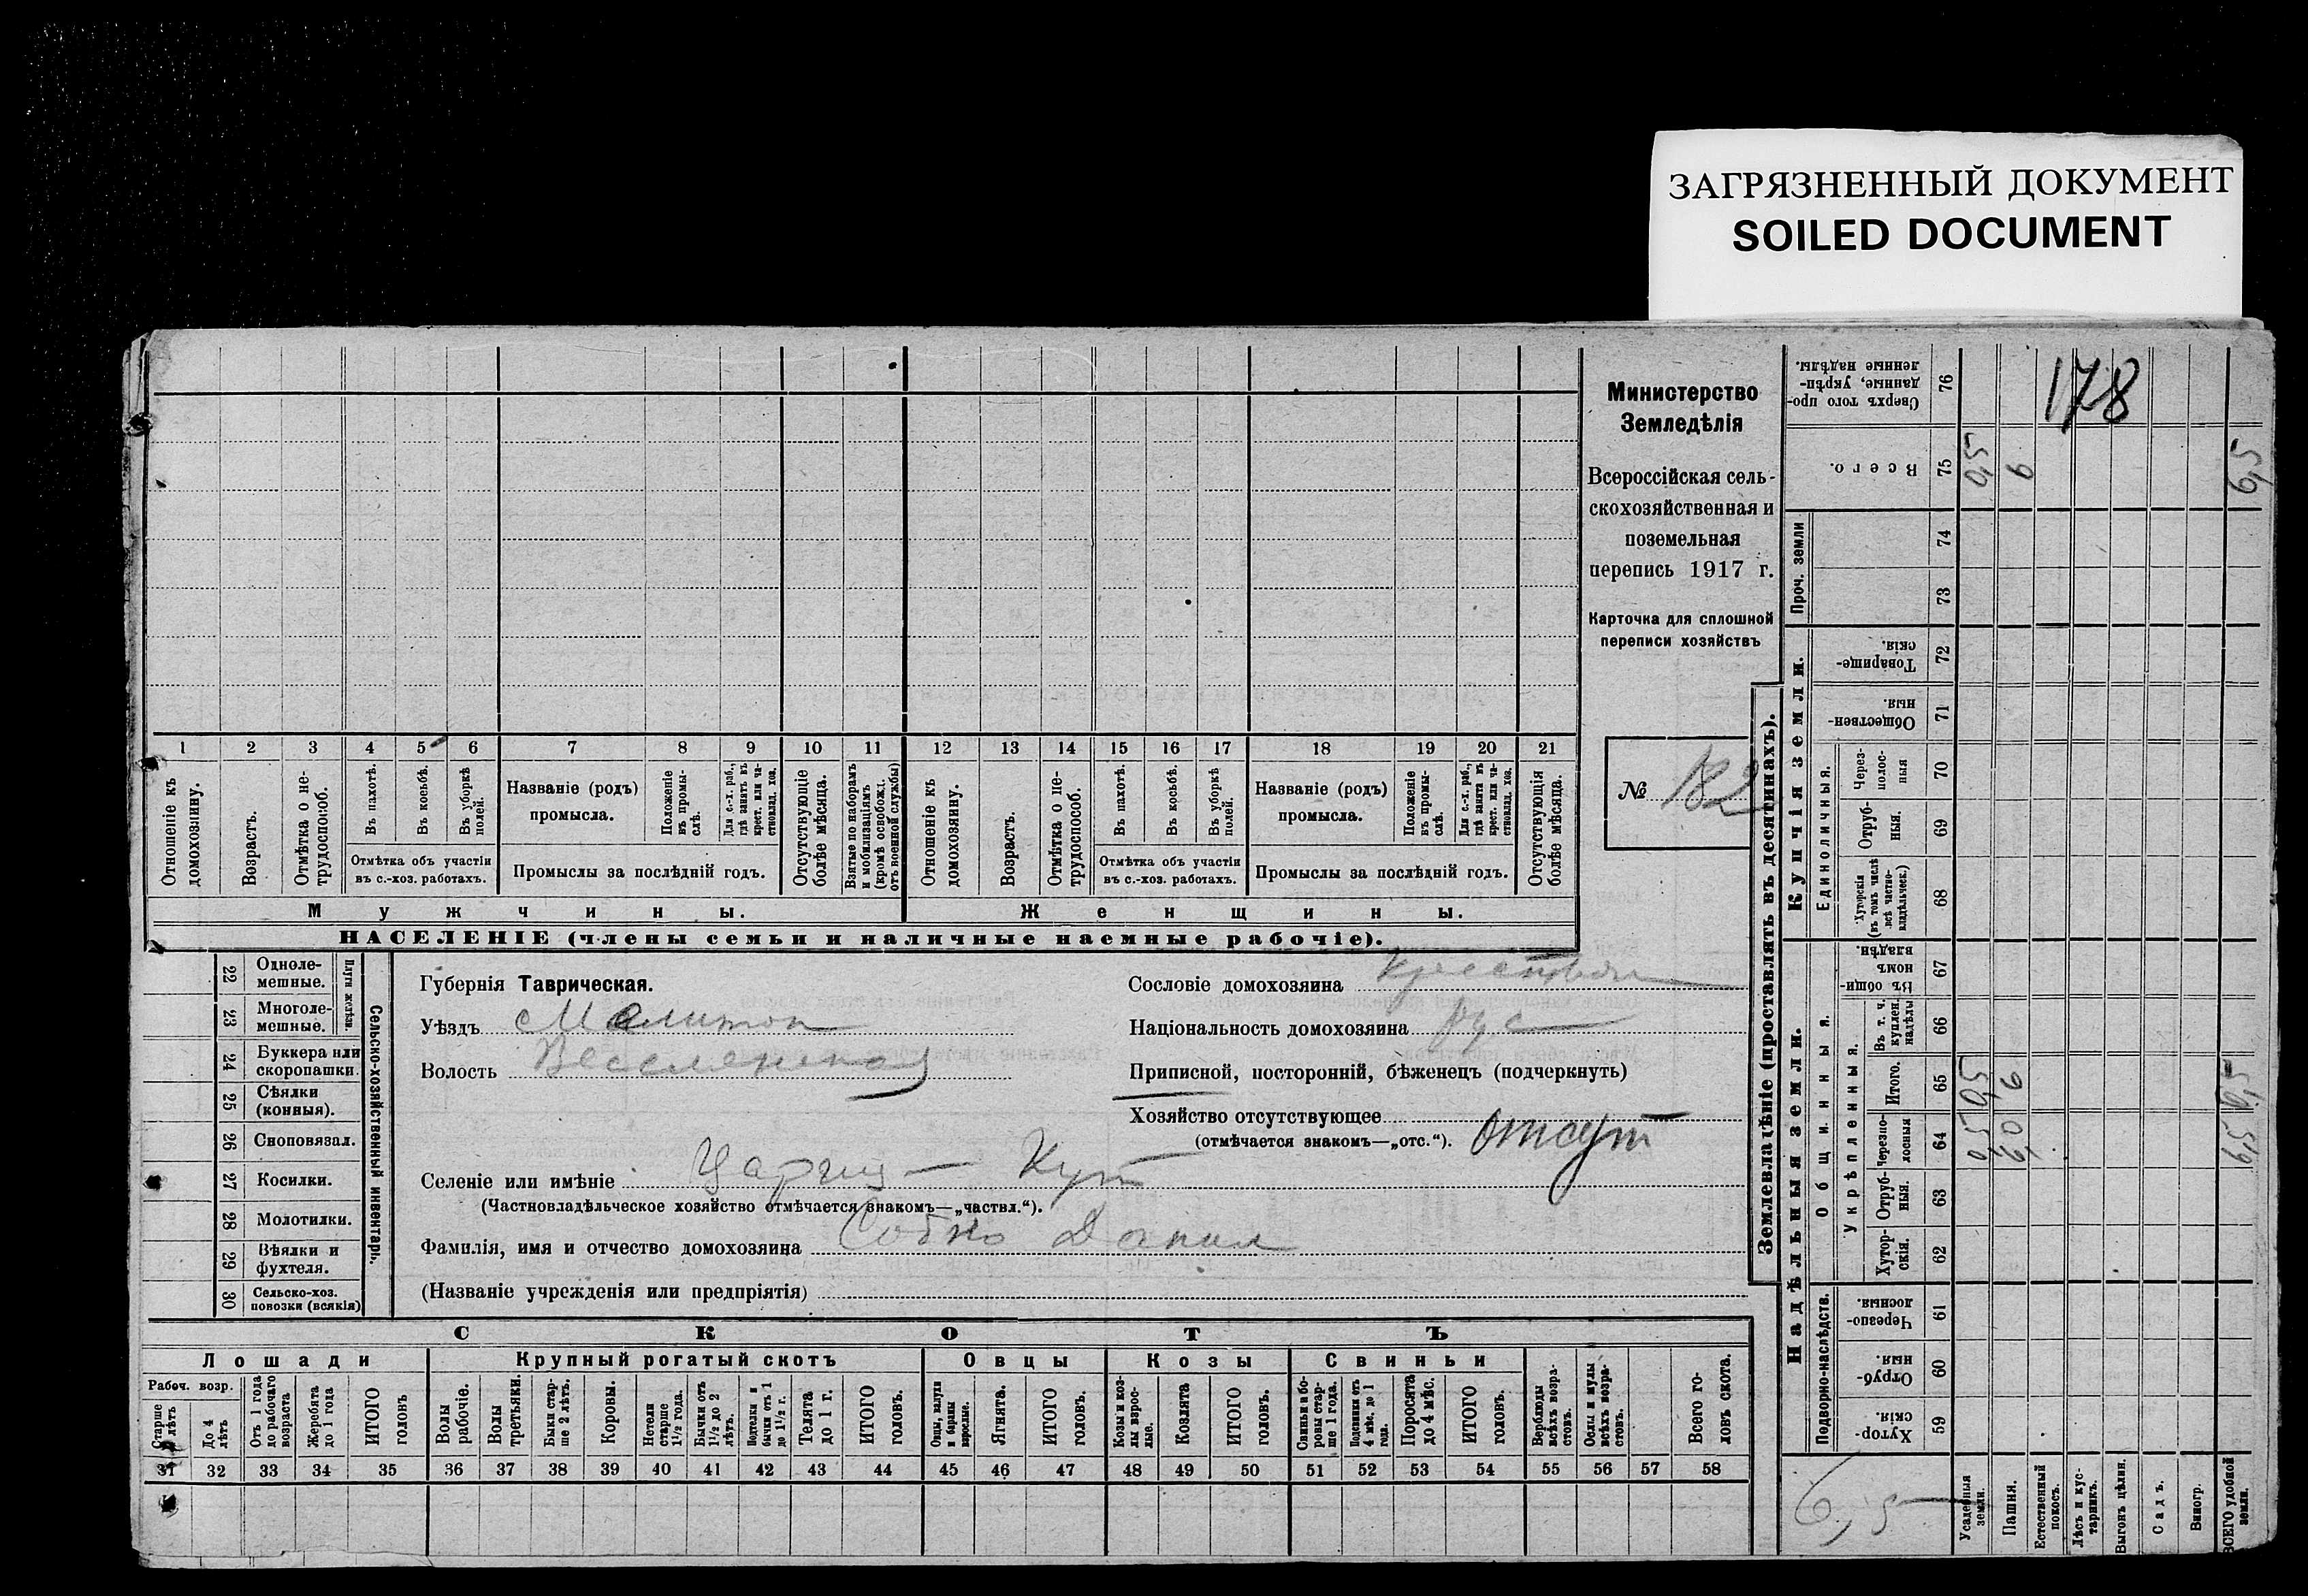 ЗАГРЯЗНЕННЫЙ ДОКУМЕНТ
SOILED DOCUMENT
178
Министерство
Земледѣлія
Всероссійская сель-
скохозяйственная и
поземельная
перепись 1917 г.
Карточка для сплошной
переписи хозяйствъ
№ 182
1 2 3 4 5 6 7 8 9 10 11 12 13 14 15 16 17 18 19 20 21
Отношеніе къ домохозяину.
Возрастъ.
Отмѣтка о не-трудоспособ.
Въ пахотѣ.
Въ косьбѣ.
Въ уборкѣ полей.
Отмѣтка объ участіи
въ с.-хоз. работахъ.
Названіе (родъ)
промысла.
Положеніе въ промы-слѣ.
Для с.-х. раб., гдѣ занятъ въ крест. или ча-стновлад. хоз.
Промыслы за послѣдній годъ.
Отсутствующіе болѣе мѣсяца.
Взятые по наборамъ и мобилизаціямъ (кромѣ освобожд. отъ военной службы)
Отношеніе къ домохозяину.
Возрастъ.
Отмѣтка о не-трудоспособ.
Въ пахотѣ.
Въ косьбѣ.
Въ уборкѣ полей.
Отмѣтка объ участіи
въ с.-хоз. работахъ.
Названіе (родъ)
промысла.
Положеніе въ промы-слѣ.
Для с.-х. раб., гдѣ занята въ крест. или ча-стновлад. хоз.
Промыслы за послѣдній годъ.
Отсутствующія болѣе мѣсяца.
Мужчины.
Женщины.
НАСЕЛЕНІЕ (члены семьи и наличные наемные рабочіе).
22 Одноле-мешные.
23 Многоле-мешные.
Плуги желѣзн.
24 Буккера или скоропашки.
25 Сѣялки (конныя).
26 Сноповязал.
27 Косилки.
28 Молотилки.
29 Вѣялки и фухтеля.
30 Сельско-хоз. повозки (всякія)
Сельско-хозяйственный инвентарь.
Губернія Таврическая.
Уѣздъ Мелитоп
Волость Веселенская
Селеніе или имѣніе Цариц - Кут
(Частновладѣльческое хозяйство отмѣчается знакомъ—„частвл.“).
Фамилія, имя и отчество домохозяина Собко Данил
(Названіе учрежденія или предпріятія)
Сословіе домохозяина Крестьян
Національность домохозяина рус
Приписной, посторонній, бѣженецъ (подчеркнуть)
Хозяйство отсутствующее
(отмѣчается знакомъ—„отс.“). отсут
СКОТЪ
Лошади
Крупный рогатый скотъ
Овцы
Козы
Свиньи
Рабоч. возр.
Старше 4 лѣтъ
До 4 лѣтъ
Отъ 1 года до рабочаго возраста
Жеребята до 1 года
ИТОГО головъ
Волы рабочіе.
Волы третьяки.
Быки стар-ше 2 лѣтъ.
Коровы.
Нетели старше 1½ года.
Бычки отъ 1½ до 2 лѣтъ.
Подтелки и бычки отъ 1 до 1½ г.
Телята до 1 г.
ИТОГО головъ.
Овцы, валухи и бараны взрослые.
Ягнята.
ИТОГО головъ.
Козы и коз-лы взрос-лые.
Козлята
ИТОГО головъ.
Свиньи и бо-ровы стар-ше 1 года.
Подсвинки отъ 4 мѣс. до 1 года.
Поросята до 4 мѣс.
ИТОГО головъ.
Верблюды всѣхъ возра-стовъ.
Ослы и мулы всѣхъ возра-стовъ.
Всего го-ловъ скота.
31 32 33 34 35 36 37 38 39 40 41 42 43 44 45 46 47 48 49 50 51 52 53 54 55 56 57 58
Землевладѣніе (проставлять въ десятинахъ).
Надѣльныя земли.
Купчія земли.
Проч. земли
Сверхъ того про-данные, укрѣп-ленные надѣлы. 76
Всего. 75 0,5 6 6,5
74
73
Товарище-скія. 72
Обществен-ныя. 71
Единоличныя.
Через-полос-ныя 70
Отруб-ныя. 69
Хуторскія (въ томъ числѣ всѣ частно-владѣльческ.) 68
Общинныя.
Въ общи-номъ владѣн. 67
Укрѣпленныя.
Въ т. ч. куплен. надѣлы 66
Итого. 65 0,5 6 6,5
Черезпо-лосныя 64
Отруб-ныя. 63
Хутор-скія. 62
Подворно-наслѣдств.
Черезпо-лосныя. 61
Отруб-ныя. 60
Хутор-скія. 59
6,5
Усадебныя земли.
Пашня.
Естественный покосъ.
Лѣсъ и кус-тарникъ.
Выгонъ цѣлин.
Садъ.
Виногр.
ВСЕГО удобной земли.